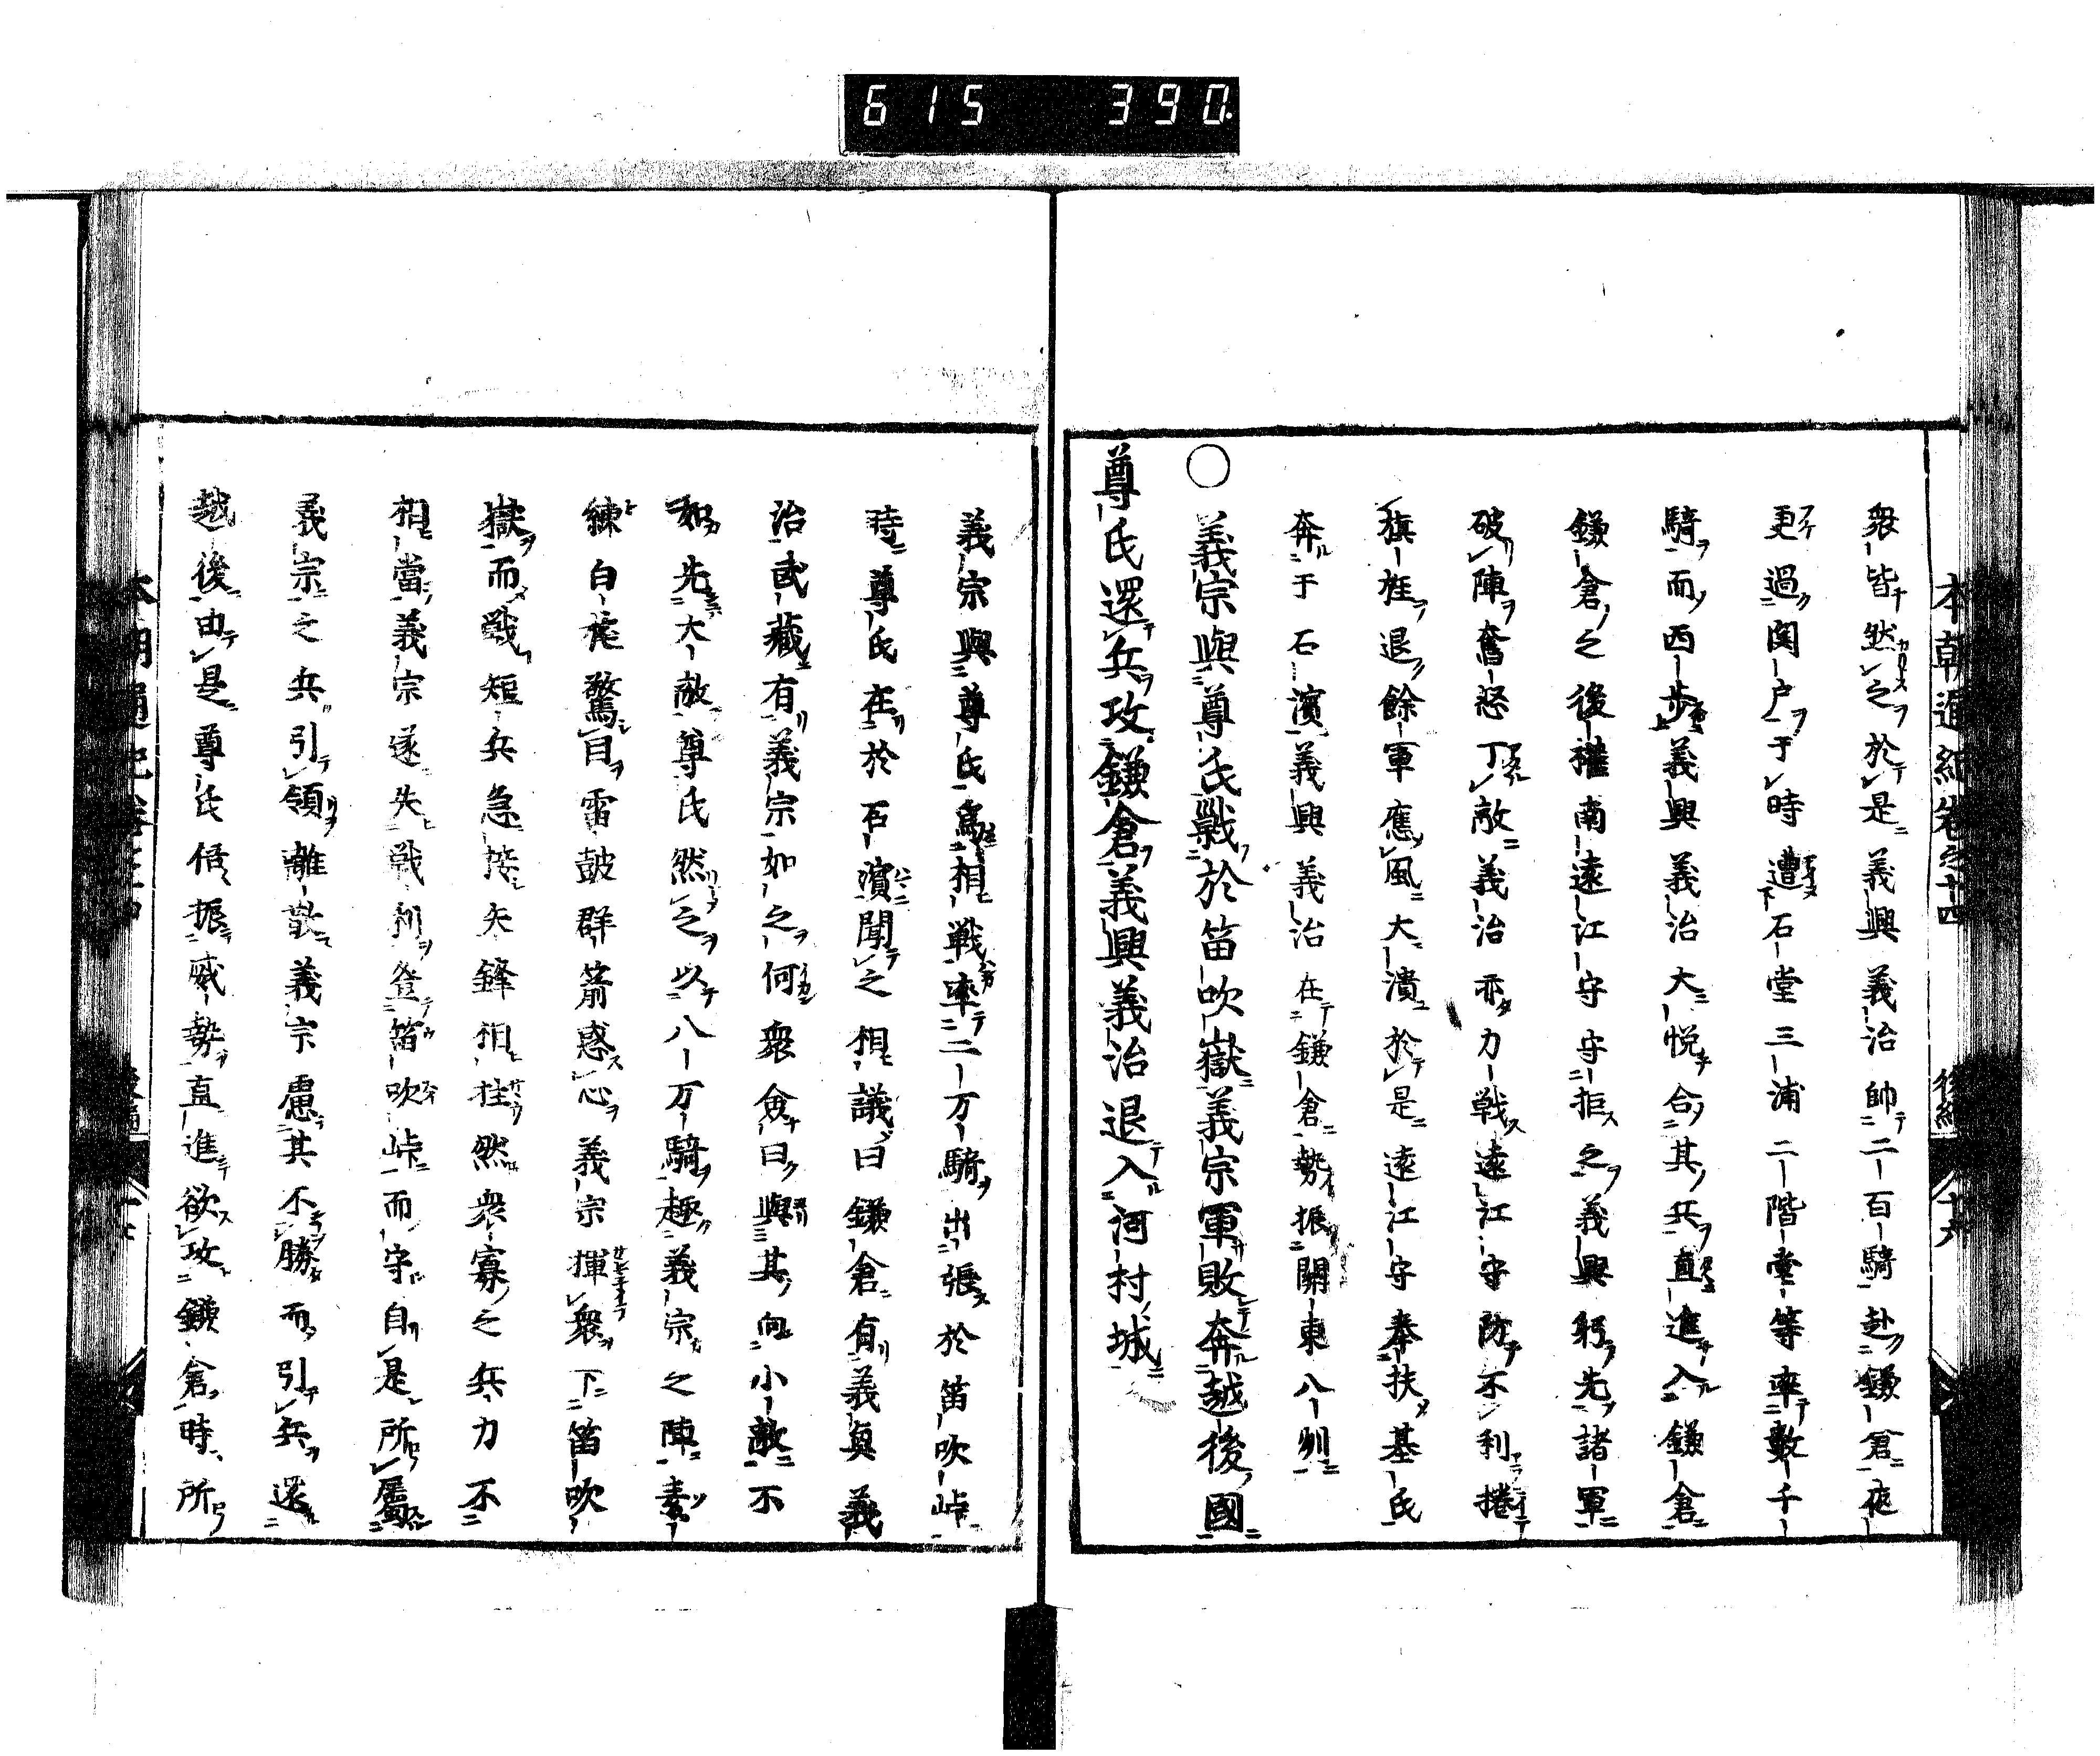 615 390
本朝通紀卷之十四 後編 十六
衆皆然之於是義興義治帥二百騎赴鎌倉夜
更過関戸于時遭石堂三浦二階堂等率數千
騎而西歩義興義治大悦合其兵直進入鎌倉
鎌倉之後權南遠江守守拒之義興躬先諸軍
破陣奮怒丁敵義治亦力戦遠江守防不利捲
旗旌退餘軍應風大潰於是遠江守奉扶基氏
奔于石濱義興義治在鎌倉勢振關東八州
○義宗與尊氏戰於笛吹嶽義宗軍敗奔越後國
尊氏還兵攻鎌倉義興義治退入河村城
義宗與尊氏為相戦率二万騎出張於笛吹峠
時尊氏在於石濱聞之相議曰鎌倉有義興義
治武藏有義宗如之何衆僉曰與其向小敵不
如先大敵尊氏然之以八万騎趣義宗之陣素
練白旄驚目雷鼓群箭惑心義宗揮衆下笛吹
嶽而戦短兵急接矢鋒相拄然衆寡之兵力不
相當義宗遂失戦利登笛吹峠而守自是所屬
義宗之兵引領離散義宗慮其不勝而引兵還
越後由是尊氏倍振威勢直進欲攻鎌倉時所